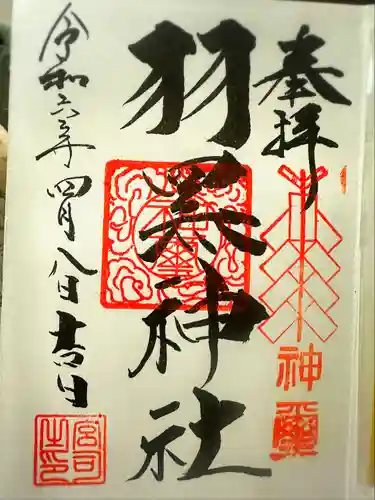 奉拝
神璽
羽黒神社
令和六年四月八日吉日
宮司之印